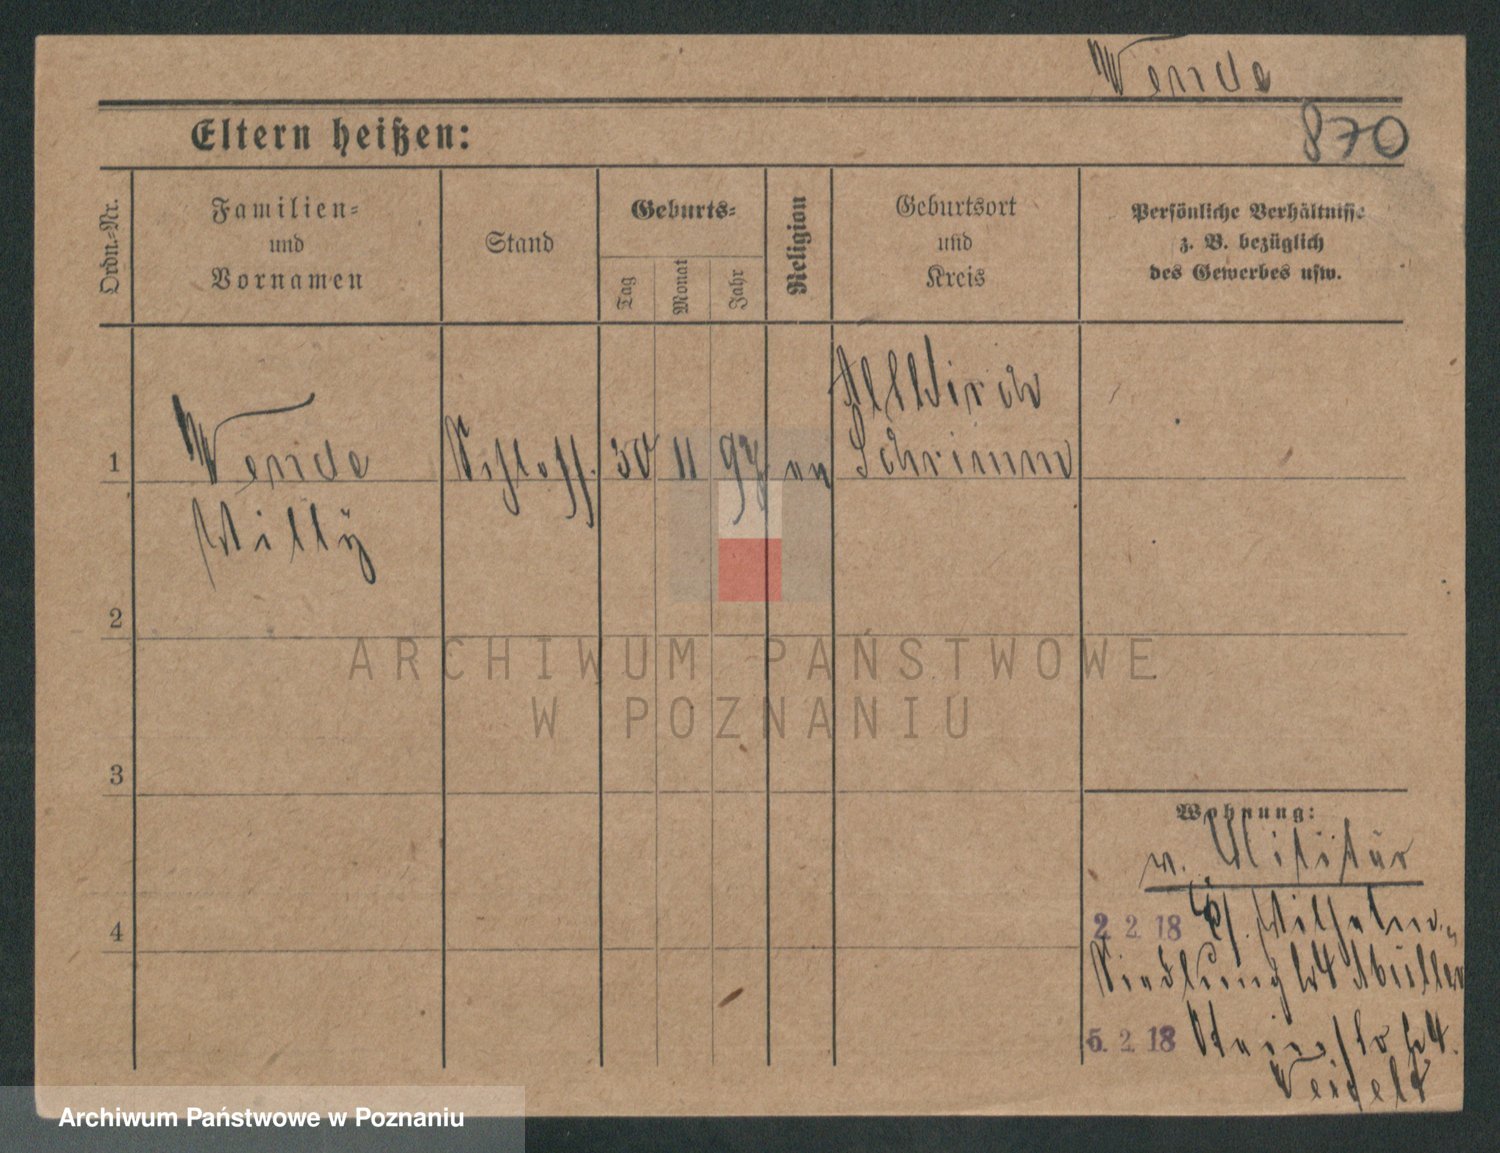 Wende
870
Eltern heißen:
Ordn.-Nr.
Familien-
und
Vornamen
Stand
Geburts-
Tag
Monat
Jahr
Religion
Geburtsort
und
Kreis
Persönliche Verhältnisse
z. B. bezüglich
des Gewerbes usw.
1
Wende
Willy
Schloss.
30
11
97
ev
Schrimm
2
3
4
Wohnung:
v. Militär
2. 2. 18 Wilhelm
Siedlung b/
5. 2. 18
ARCHIWUM PAŃSTWOWE
W POZNANIU
Archiwum Państwowe w Poznaniu